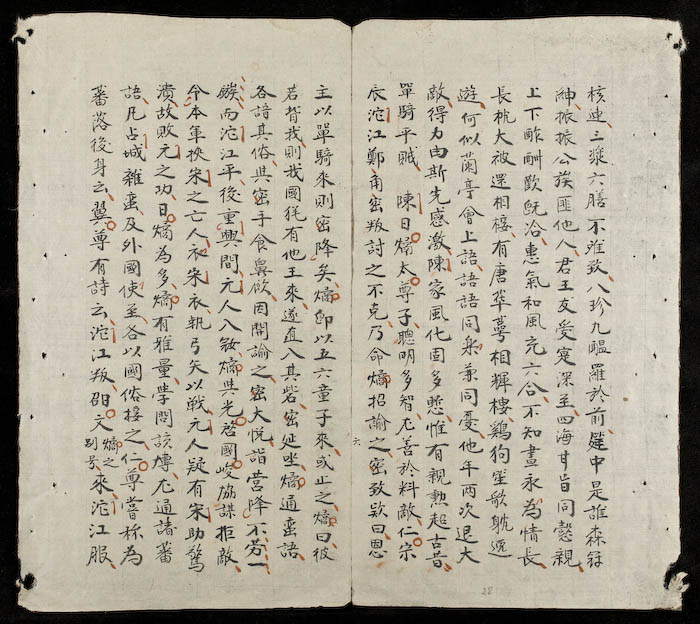 核連三漿六膳不难致八珍九醖羅於前筵中是誰森冠
紳振振公族匪他人君王友愛寔深至四海甘旨同懿親
上下酢酬歡既洽惠氣和風充六合不知晝永為情長
長枕大被還相樓有唐萃萼相輝樓鷄狗笙歌躭逸
遊何似蘭亭會上語語語同樂兼同憂他年两次退大
敵得力由斯先感激陳家風化固多慙惟有親勲起古昔
單騎平賊 陳日燏太尊子聰明多智尤善於料敵仁宗
辰沱江鄭角密叛討之不克乃命燏招諭之密致欵曰恩
六
主以單騎來則密降矣燏卽以五六童子來或止之燏曰彼
若背我則我國猶有他王來遂直入其砦密延坐燏通蛮語
各諳其俗與密手食鼻飲因開諭之密大悦詣營降不劳一
鏃而沱江平後重興間元人入燏與光啓國峻協謀拒敵
令本軍挾宋之亡人衣宋衣執弓矢以戦元人疑有宋助驚
潰故敗元之功日燏為多燏有雅量學問該博尤通諸蕃
語凡占城雜蛮及外國使至各以國俗接之仁尊嘗称為
蕃落後身云翼尊有詩云沱江叛邵文燏之别号來沱江服
28